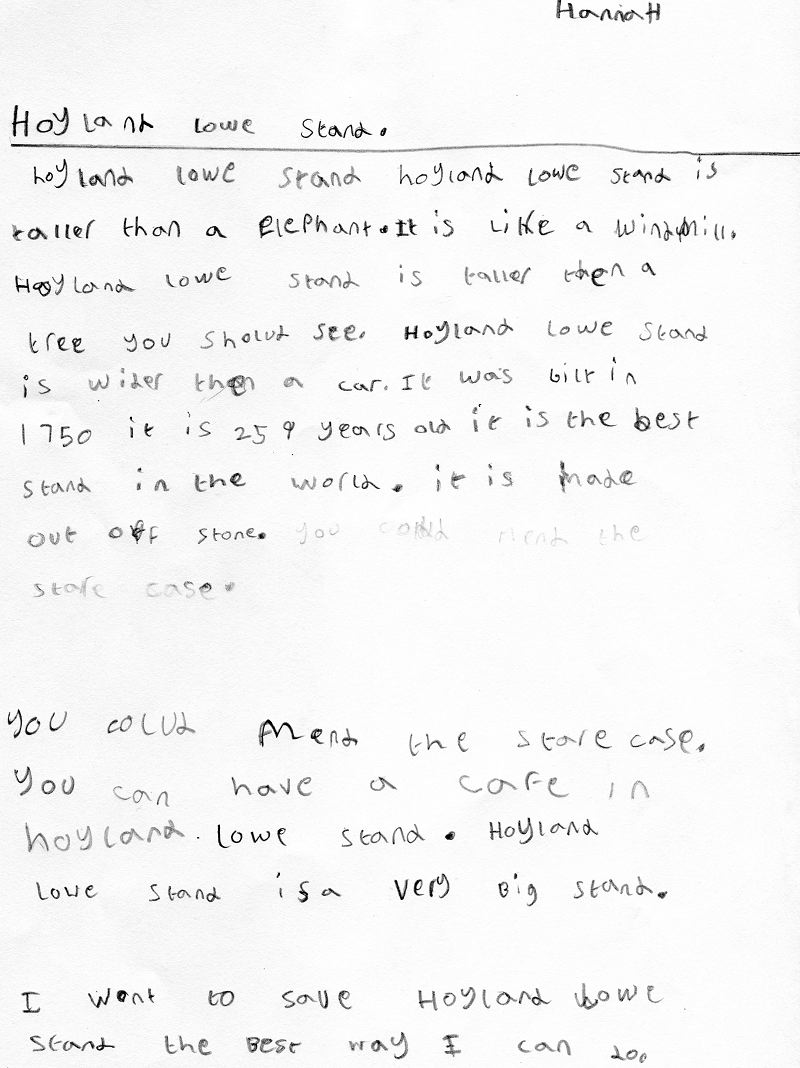 HannaH
Hoyland Lowe Stand.
hoyland lowe stand hoyland lowe stand is
taller than a Elephant. It is Like a windmill.
Hoyland lowe stand is taller then a
tree you sholud see. Hoyland lowe stand
is wider then a car. It was bilt in
1750 it is 259 years old it is the best
stand in the world. it is made
out off stone. you could mend the
stare case.
you colud mend the stare case.
you can have a cafe in
hoyland. lowe stand. Hoyland
Lowe stand is a very Big stand.
I want to save Hoyland Lowe
stand the Best way I can